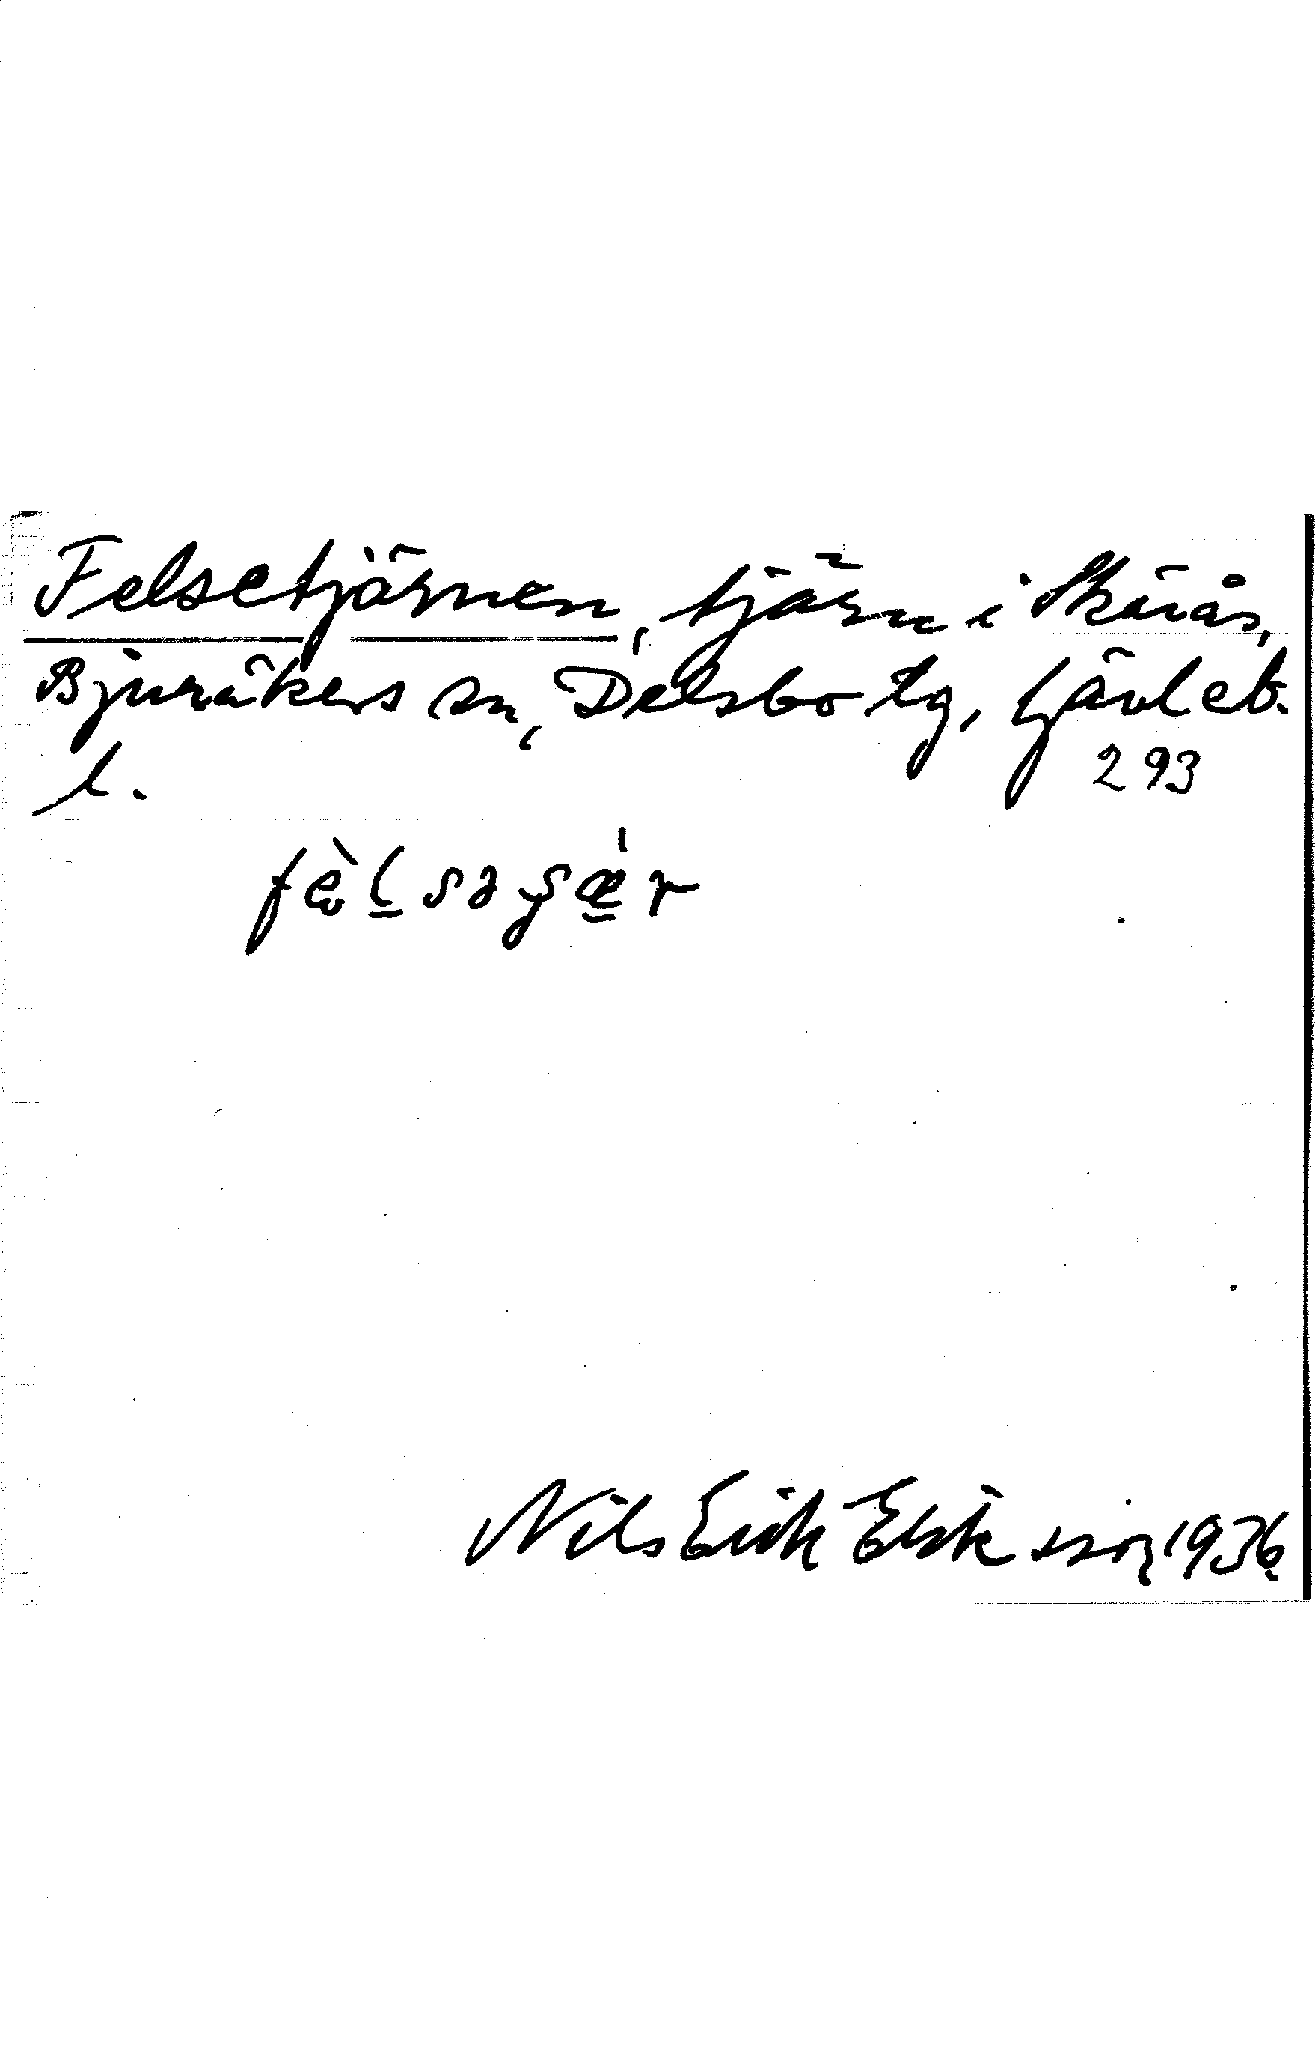 Felsetjärnen, tjärn i Skärås,
Bjuråkers sn, Delsbo tg, Gävleb.
l. 293
fèlsəʂæ̀r
Nils Erik Eskesson, 1936.